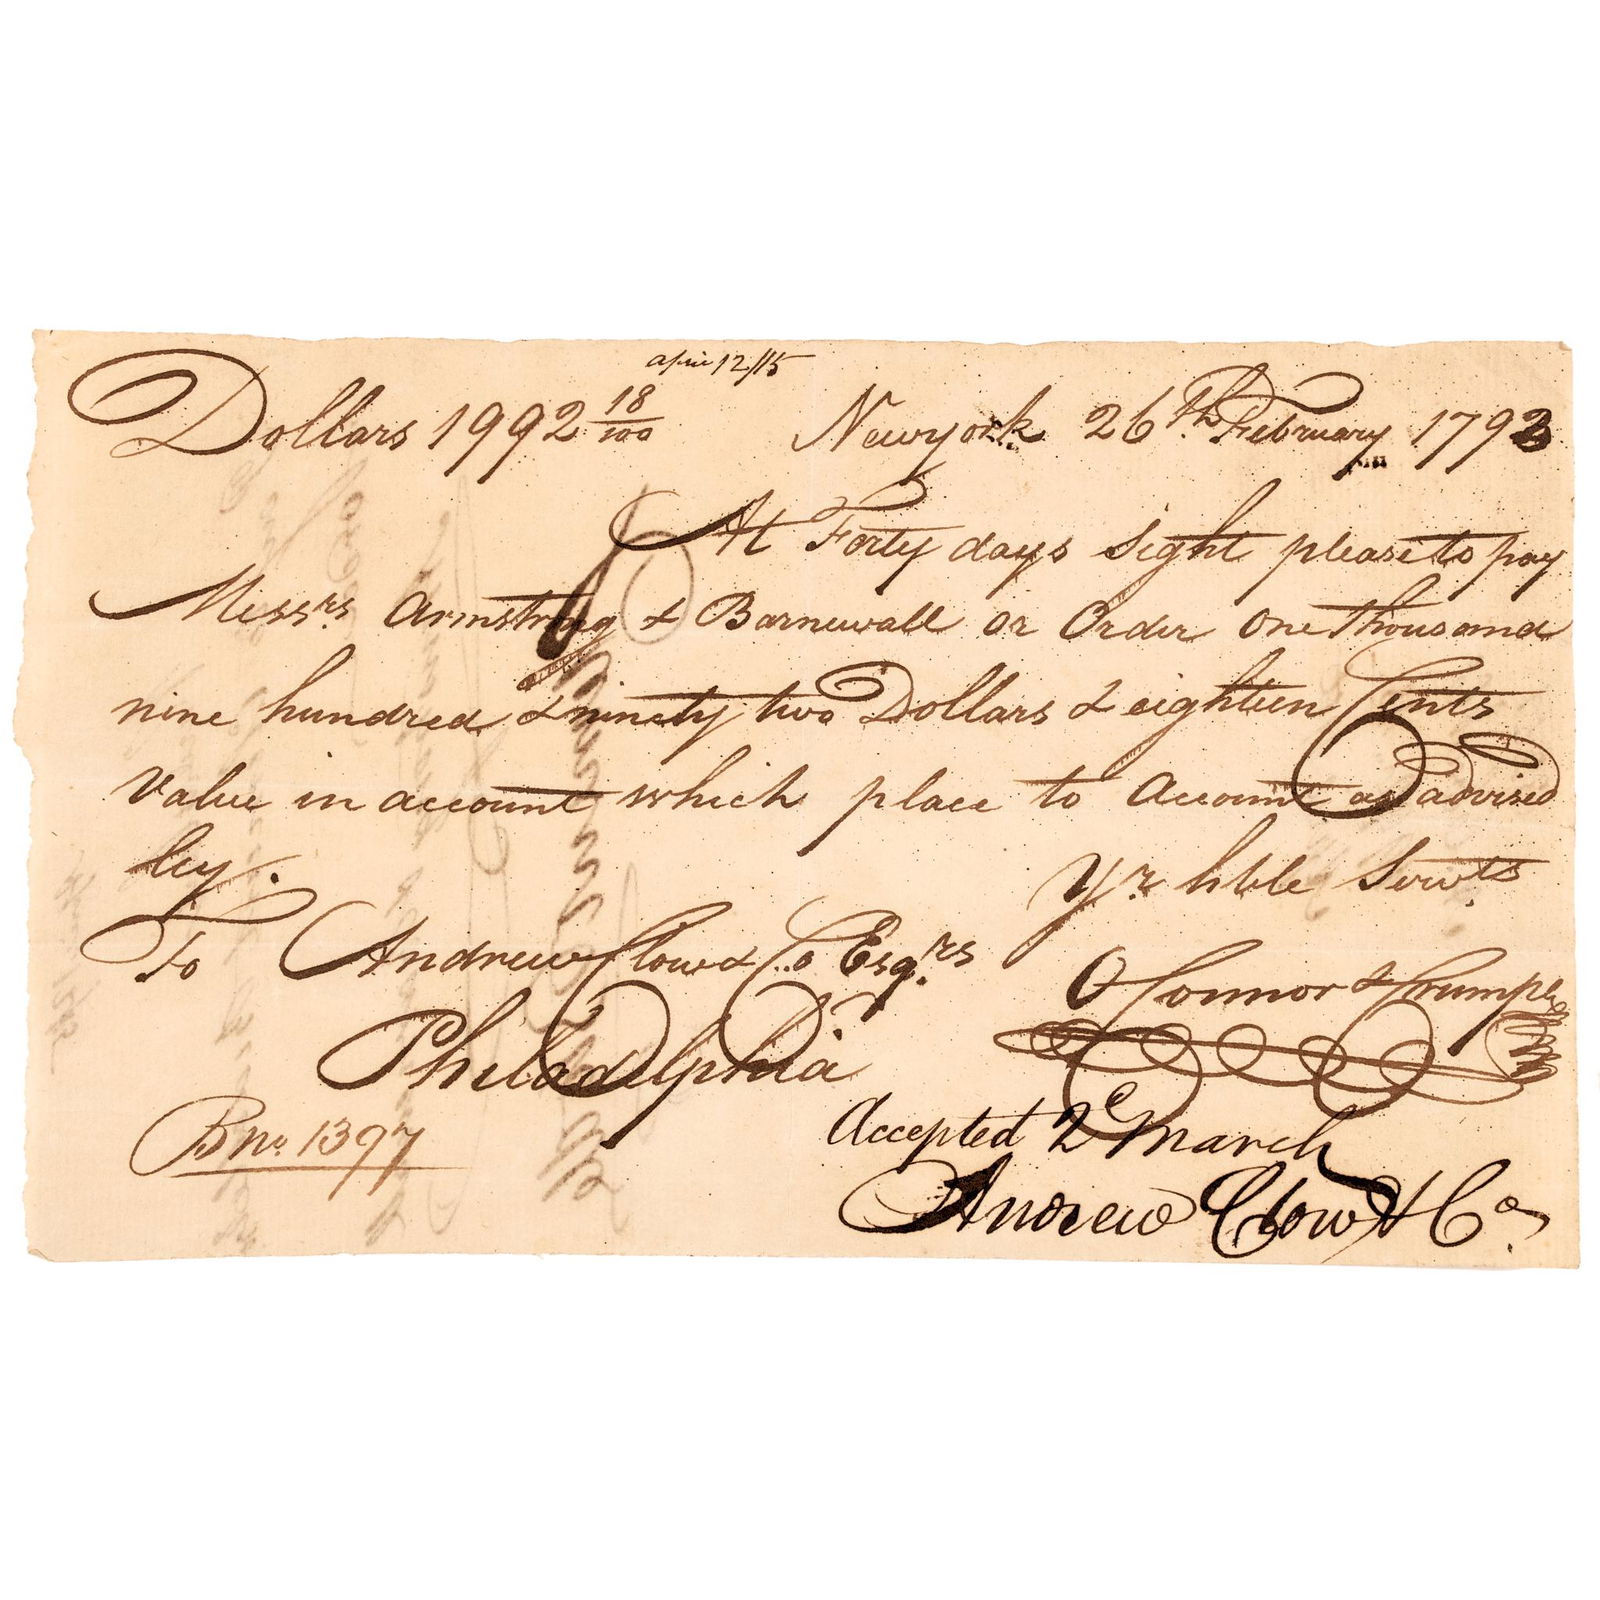 apri 12/15
Dollars 1992 18/100 Newyork 26th February 1793
At Forty days sight please to pay
Messrs. Armstrong & Barnewall or Order One thousand
nine hundred & ninety two Dollars & eighteen Cents
Value in account which place to Account as advised
by.
Yr. hble Servts.
To Andrew Clow & Co Esqrs.
O Connor & Crump
Philadelphia
Accepted 2e March
Bno. 1397
Andrew Clow & Co.